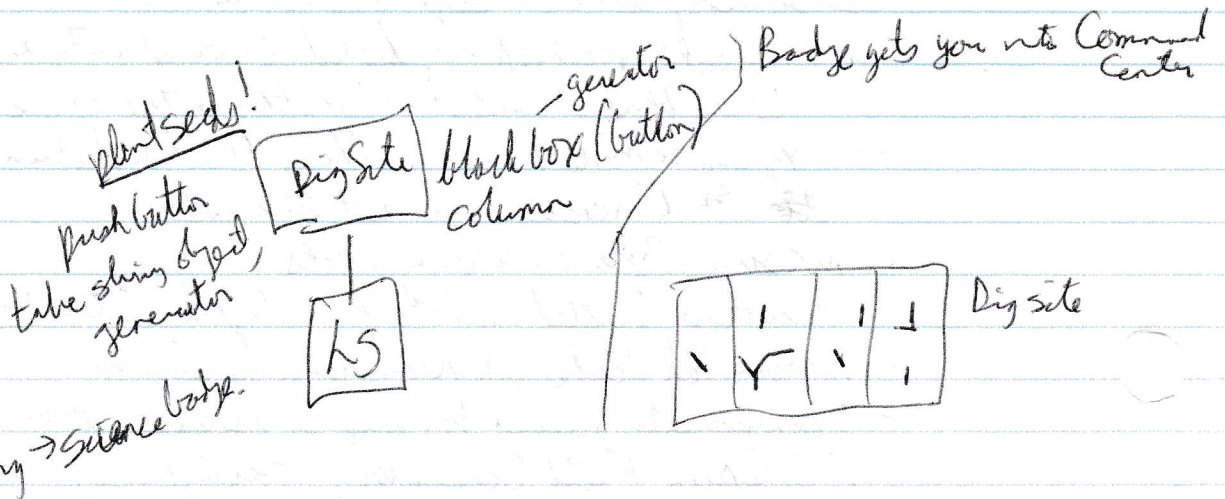 plant seeds!
push button
take shiny object,
generator
Dig Site
generator
black box (button)
column
LS
→ Science badge.
Badge gets you into Command
Center
Dig site